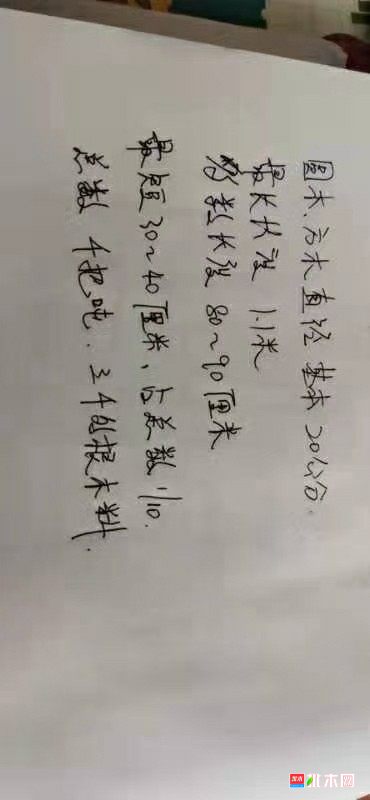 圆木、方木直径 基本 20公分.
最长长度 1.1米
多数长度 80~90厘米
最短30~40厘米、占总数1/10.
总数 4把吨. 三千的根木料.
批木网